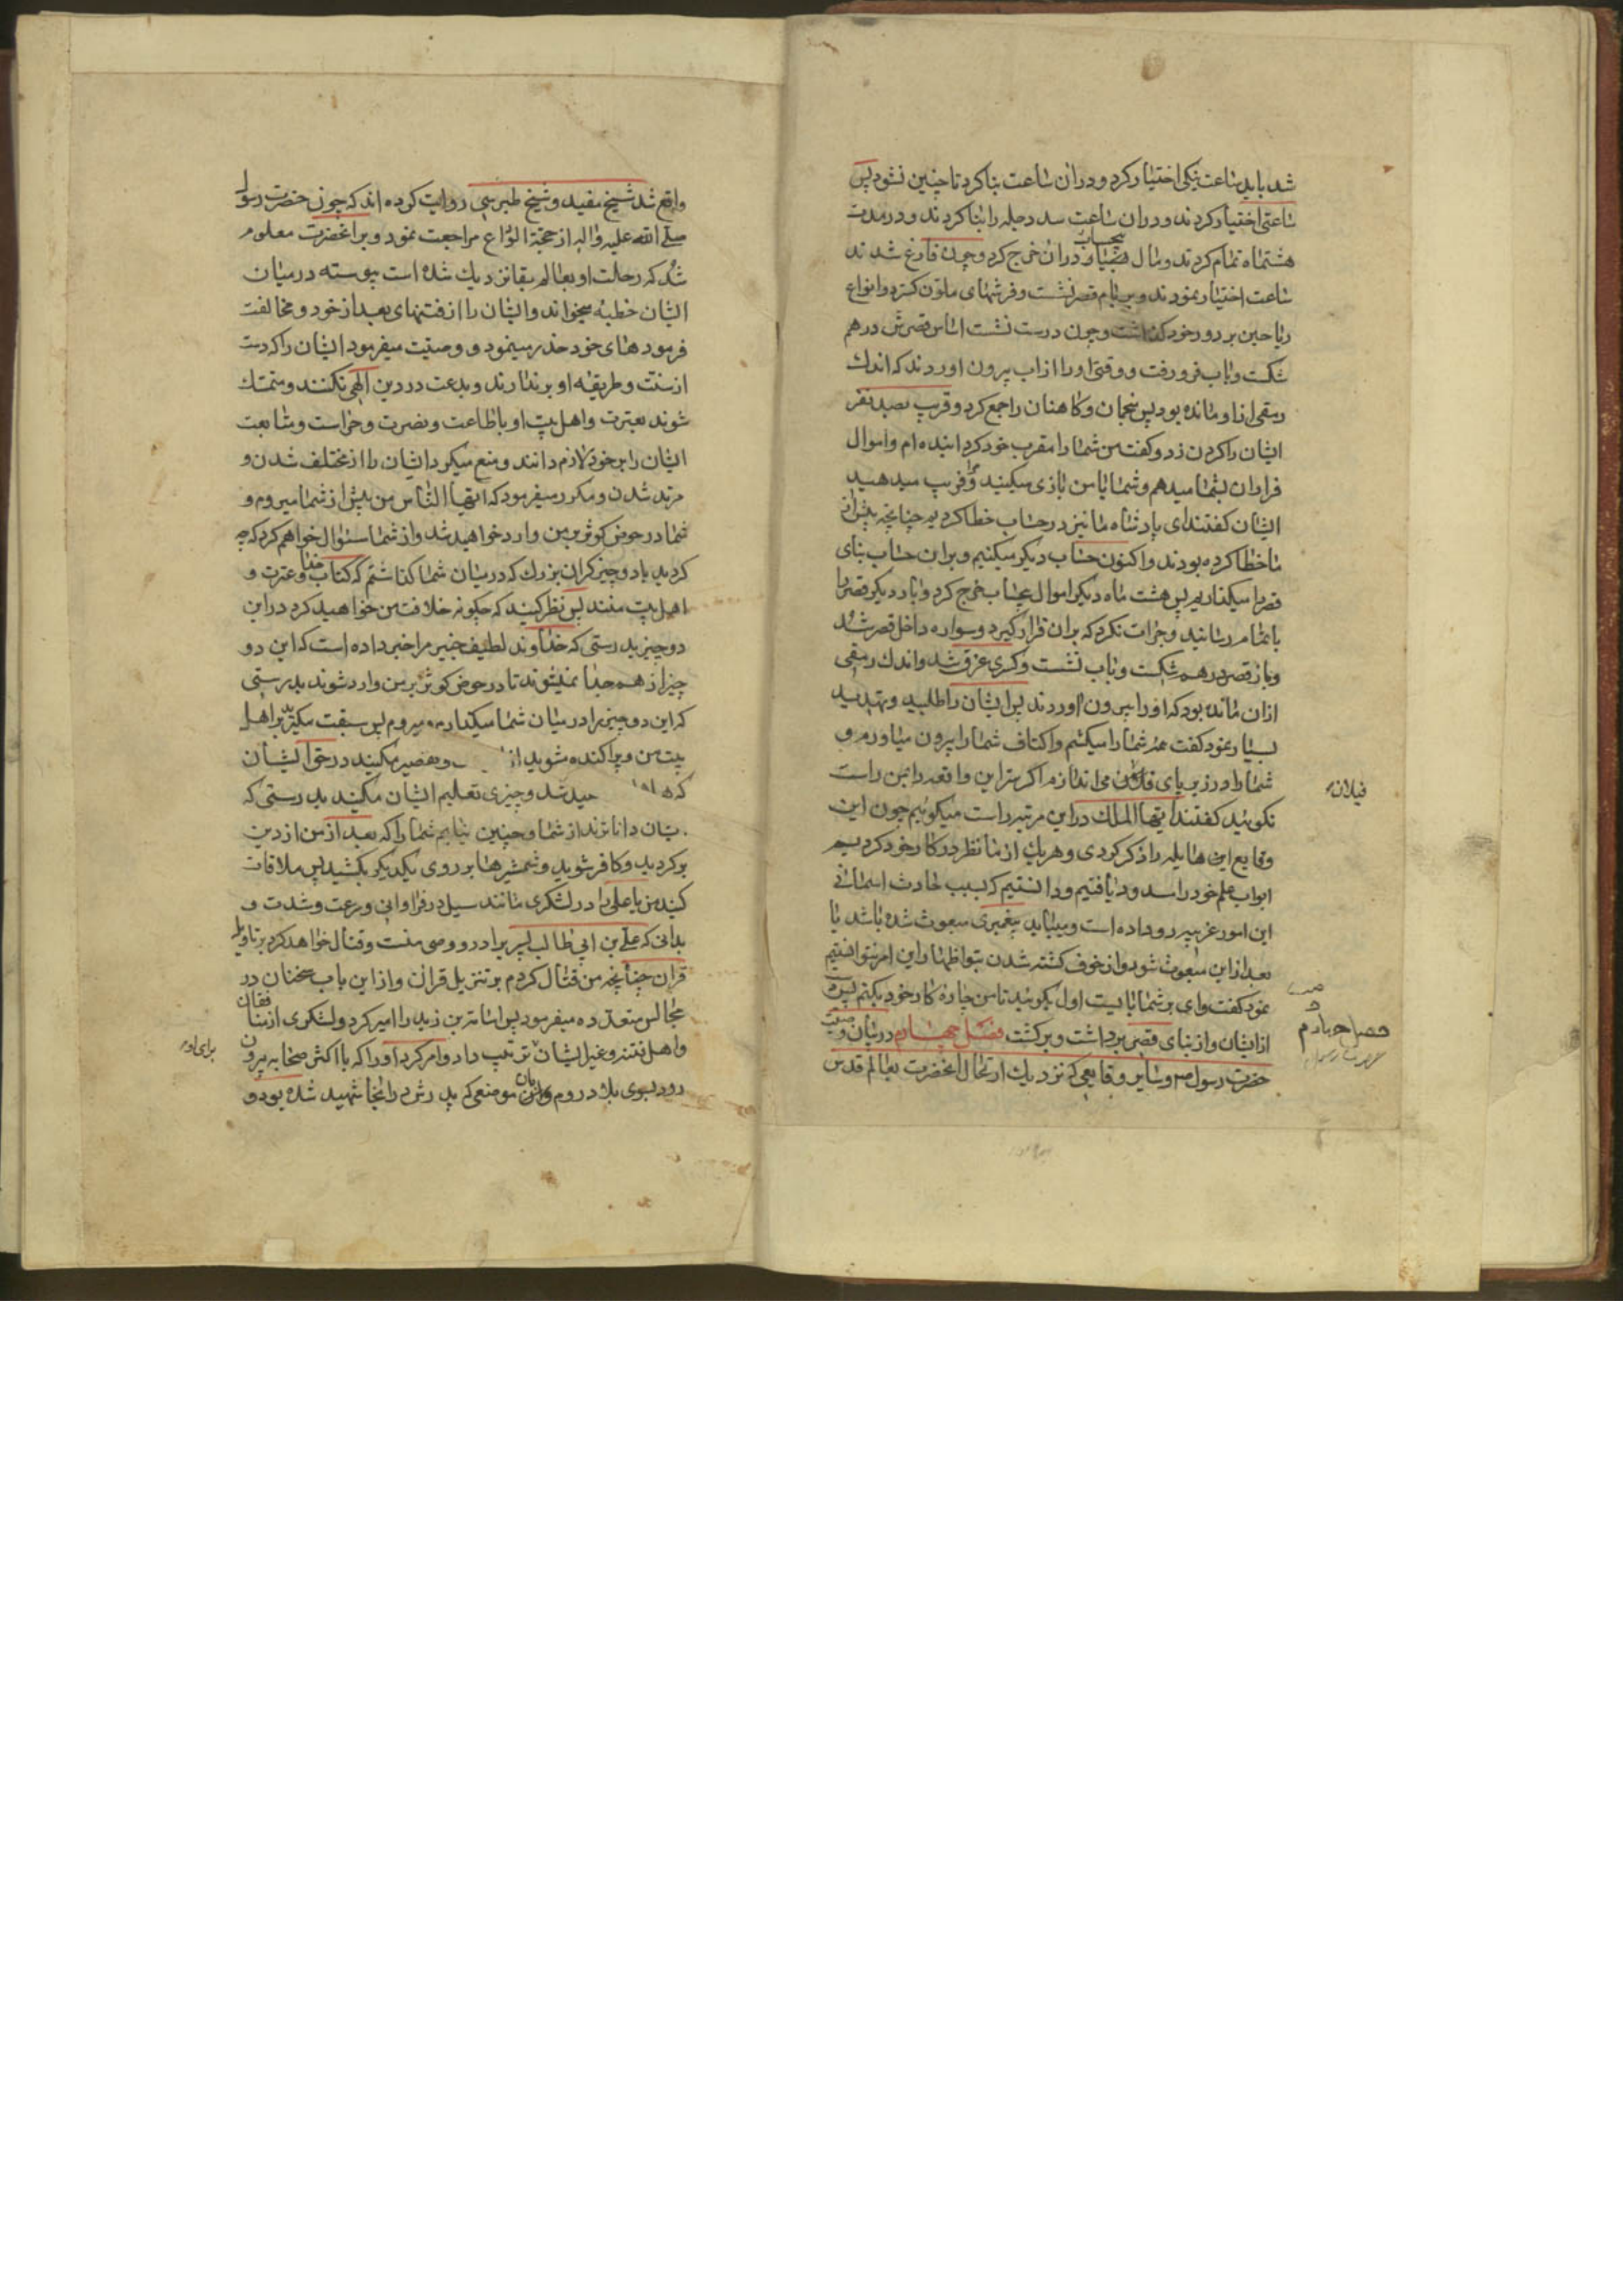 شد باید ساعت نیکی اختیار کرد و در ان ساعت بنا کرد تا چنین نشود پس
ساعتی اختیار کردند و در ان ساعت سد دجله را بنا کردند و در مدت
هشتماه تمام کردند و مال بیحساب در ان خرج کرد و چون فارغ شدند
ساعت اختیار نمودند و بر بام قصر نشست و فرشهای ملون کسترد و انواع
ریاحین بر دور خود کذاشت و چون درست نشست اساس قصرش درهم
شکست و باب فرو رفت و وقتی او را از اب بیرون اوردند که اندک
رمقی از او مانده بود پس منجمان و کاهنان را جمع کرد و قریب بصد نفر
ایشان را کردن زد و کفت من شما را مقرب خود کردانیده ام و اموال
فراوان بشما میدهم و شما با من بازی میکنید و فریب میدهید
ایشان کفتند ای پادشاه ما نیز در حساب خطا کردیم چنانچه پیش از
ما خطا کرده بودند و اکنون حساب دیکر میکنیم و بر ان حساب بنای
قصر را میکذاریم پس هشت ماه دیکر اموال بیحساب خرج کرد و بار دیکر قصر را
باتمام رسانید و جرات نکرد که بر ان قرار کیرد و سواره داخل قصر شد
و باز قصر درهم شکست و باب نشست و کسری غرق شد و اندک رمقی
از ان مانده بود که او را بیرون اوردند پس ایشان را طلبید و تهدید
بسیار نمود کفت همه شما را میکشم و اکتاف شما را بیرون میاورم و
شما را در زیر پای می اندازم اکر سر این واقعه را بمن راست
فیلان
نکوئید کفتند ایها الملک در این مرتبه راست میکوئیم چون این
وقایع هایله را ذکر کردی و هریک از ما نظر در کار خود کردیم
ابواب علم خود را مسدود یافتیم و دانستیم که بسبب حادث اسمانی
این امور غریبه رو داده است و میباید پیغمبری مبعوث شده باشد یا
بعد از این مبعوث شود و از خوف کشته شدن اظهار این امر نتوانستیم
نمود کفت وای بر شما بایست اول بکوئید تا من چاره کار خود بکنم پس دست
از ایشان و از بنای قصر برداشت و برکشت فصل چهارم در بیان وصیت
فصل چهارم
حضرت رسول ص و سایر وقایعی که نزدیک ارتحال انحضرت بعالم قدس
واقع شد شیخ مفید و شیخ طبرسی روایت کرده اند که چون حضرت رسول
صلی الله علیه و اله از حجة الوداع مراجعت نمود و بر انحضرت معلوم
شد که رحلت او بعالم بقا نزدیک شده است پیوسته در میان
ایشان خطبه میخواند و ایشان را از فتنهای بعد از خود و مخالفت
فرموده های خود حذر مینمود و وصیت میفرمود ایشان را که دست
از سنت و طریقه او بر ندارند و بدعت در دین الهی نکنند و متمسک
شوند بعترت و اهل بیت او باطاعت و نصرت و حراست و متابعت
ایشان را بر خود لازم دانند و منع میکرد ایشان را از مختلف شدن و
مرتد شدن و مکرر میفرمود که ایها الناس من پیش از شما میروم و
شما در حوض کوثر بر من وارد خواهید شد و از شما سئوال خواهم کرد که چه
کردید با دو چیز کران بزرک که در میان شما کذاشتم که کتاب خدا و عترت و
اهل بیت منند پس نظر کنید که چکونه خلافت من خواهید کرد در این
دو چیز بدرستی که خداوند لطیف خبیر مرا خبر داده است که این دو
چیز از هم جدا نمیشوند تا در حوض کوثر بر من وارد شوند بدرستی
که این دو چیز را در میان شما میکذارم و میروم پس سبقت مکیرید بر اهل
بیت من و پراکنده مشوید از و تقصیر مکنید در حق ایشان
که شد و چیزی تعلیم ایشان مکنید بدرستی که
دانا ترند از شما و چنین نیابم شما را که بعد از من از دین
برکردید و کافر شوید و شمشیرها بر روی یکدیکر بکشید پس ملاقات
کنید من یا علی را در لشکری مانند سیل در فراوانی و سرعت و شدت و
بدانی که علی بن ابی طالب پسر برادر و وصی منست و قتال خواهد کرد بر تاویل
قران چنانچه من قتال کردم بر تنزیل قران و از این باب سخنان در
مجالس متعدده میفرمود پس اسامة بن زید را امیر کرد و لشکری از منافقان
و اهل فتنه و غیر ایشان ترتیب داد و امر کرد او را که با اکثر صحابه بیرون
برای او
رود بسوی بلاد روم بان موضعی که پدرش در انجا شهید شده بود و